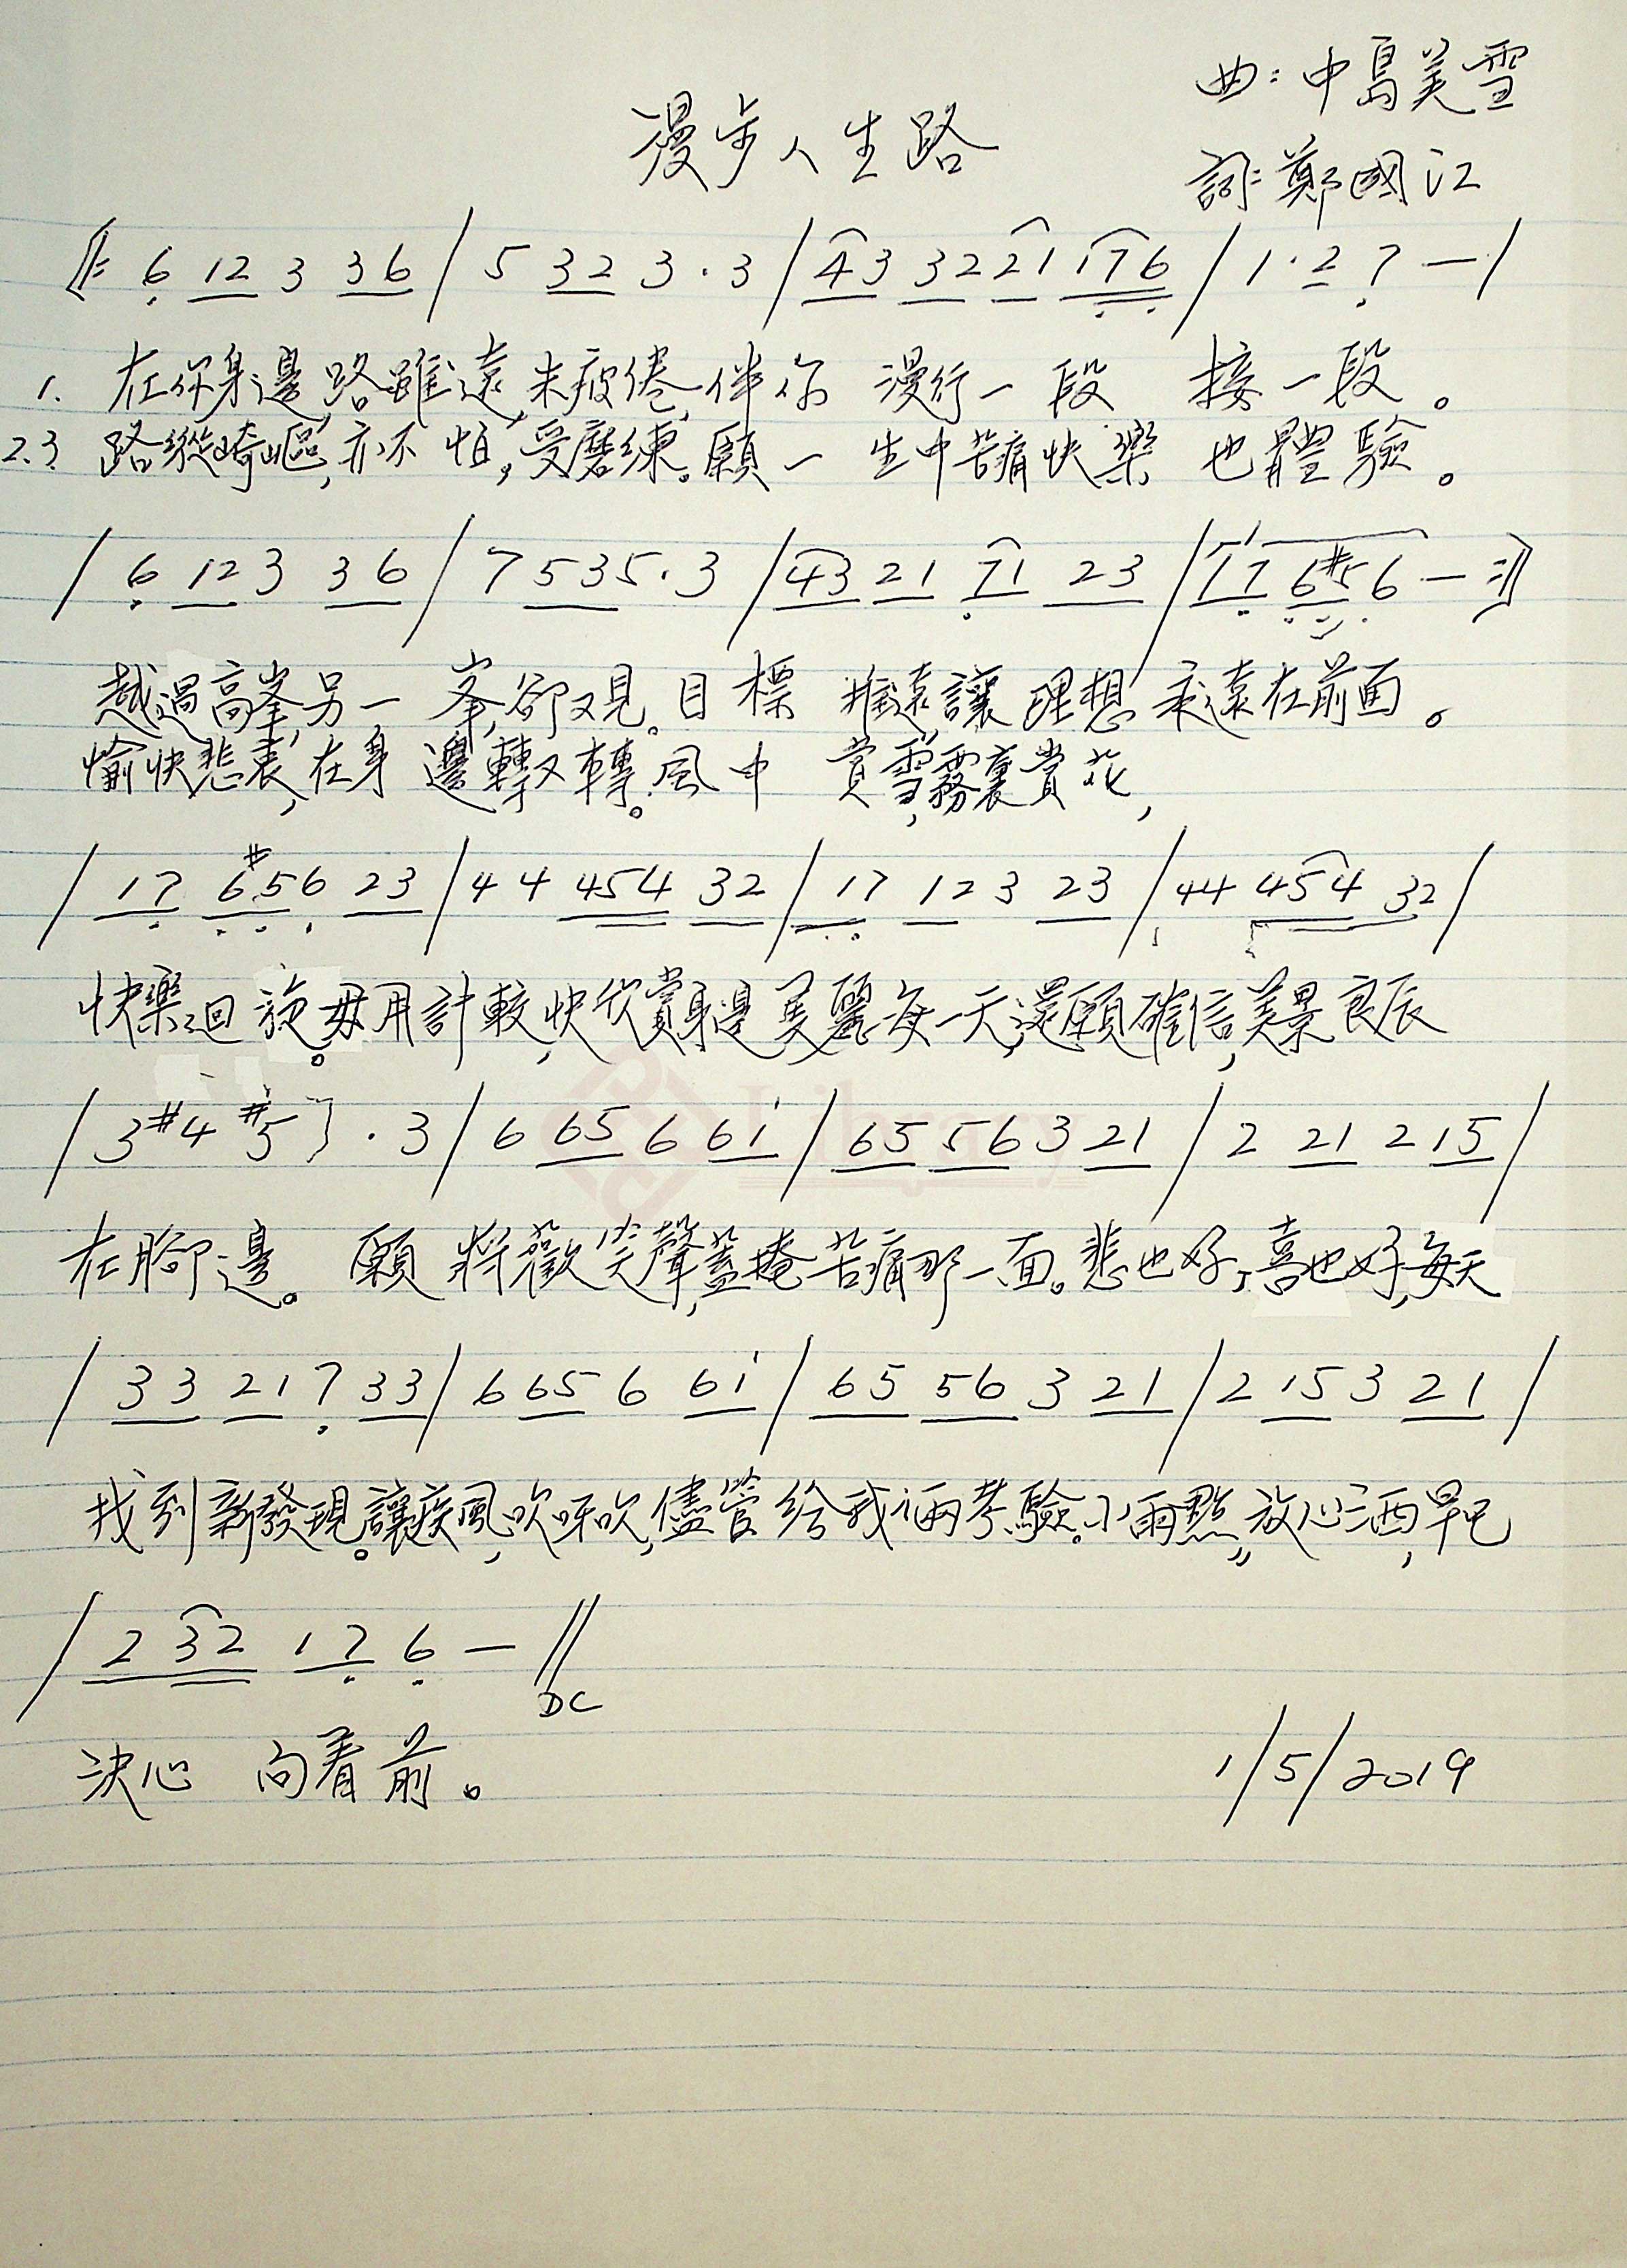 曲：中島美雪
漫步人生路
詞：鄭國江
/: 6 12 3 36 / 5 32 3 · 3 / 43 32 21 176 / 1 · 2 7 — /
1. 在你身邊,路雖遠,未疲倦,伴你 漫行一 段 接一段。
2.3. 路縱崎嶇,亦不怕,受磨練。願一 生中苦痛快樂 也體驗。
/ 6 12 3 36 / 7 535 · 3 / 43 21 71 23 / 17 6#56 — :/
越過高峯,另一 峯,卻又見。目標 推遠,讓理想,永遠在前面。
愉快悲哀,在身 邊轉又轉。風中 賞雪,霧裏賞花,
/ 17 6#56 23 / 44 454 32 / 17 12 3 23 / 44 454 32 /
快樂迴旋。毋用計較,快欣賞身邊美麗每一天,還願確信,美景良辰
/ 3 #4 #5 3 · 3 / 6 65 6 61 / 65 56 3 21 / 2 21 2 15 /
在腳邊。 願 將歡笑聲,蓋掩苦痛那一面。悲也好,喜也好,每天
/ 33 21 7 33 / 6 65 6 61 / 65 56 3 21 / 2 15 3 21 /
找到新發現。讓疾風,吹呀吹,儘管給我倆考驗。小雨點,放心洒,早已
/ 2 32 17 6 — //
DC
決心 向着前。
1/5/2019
Library